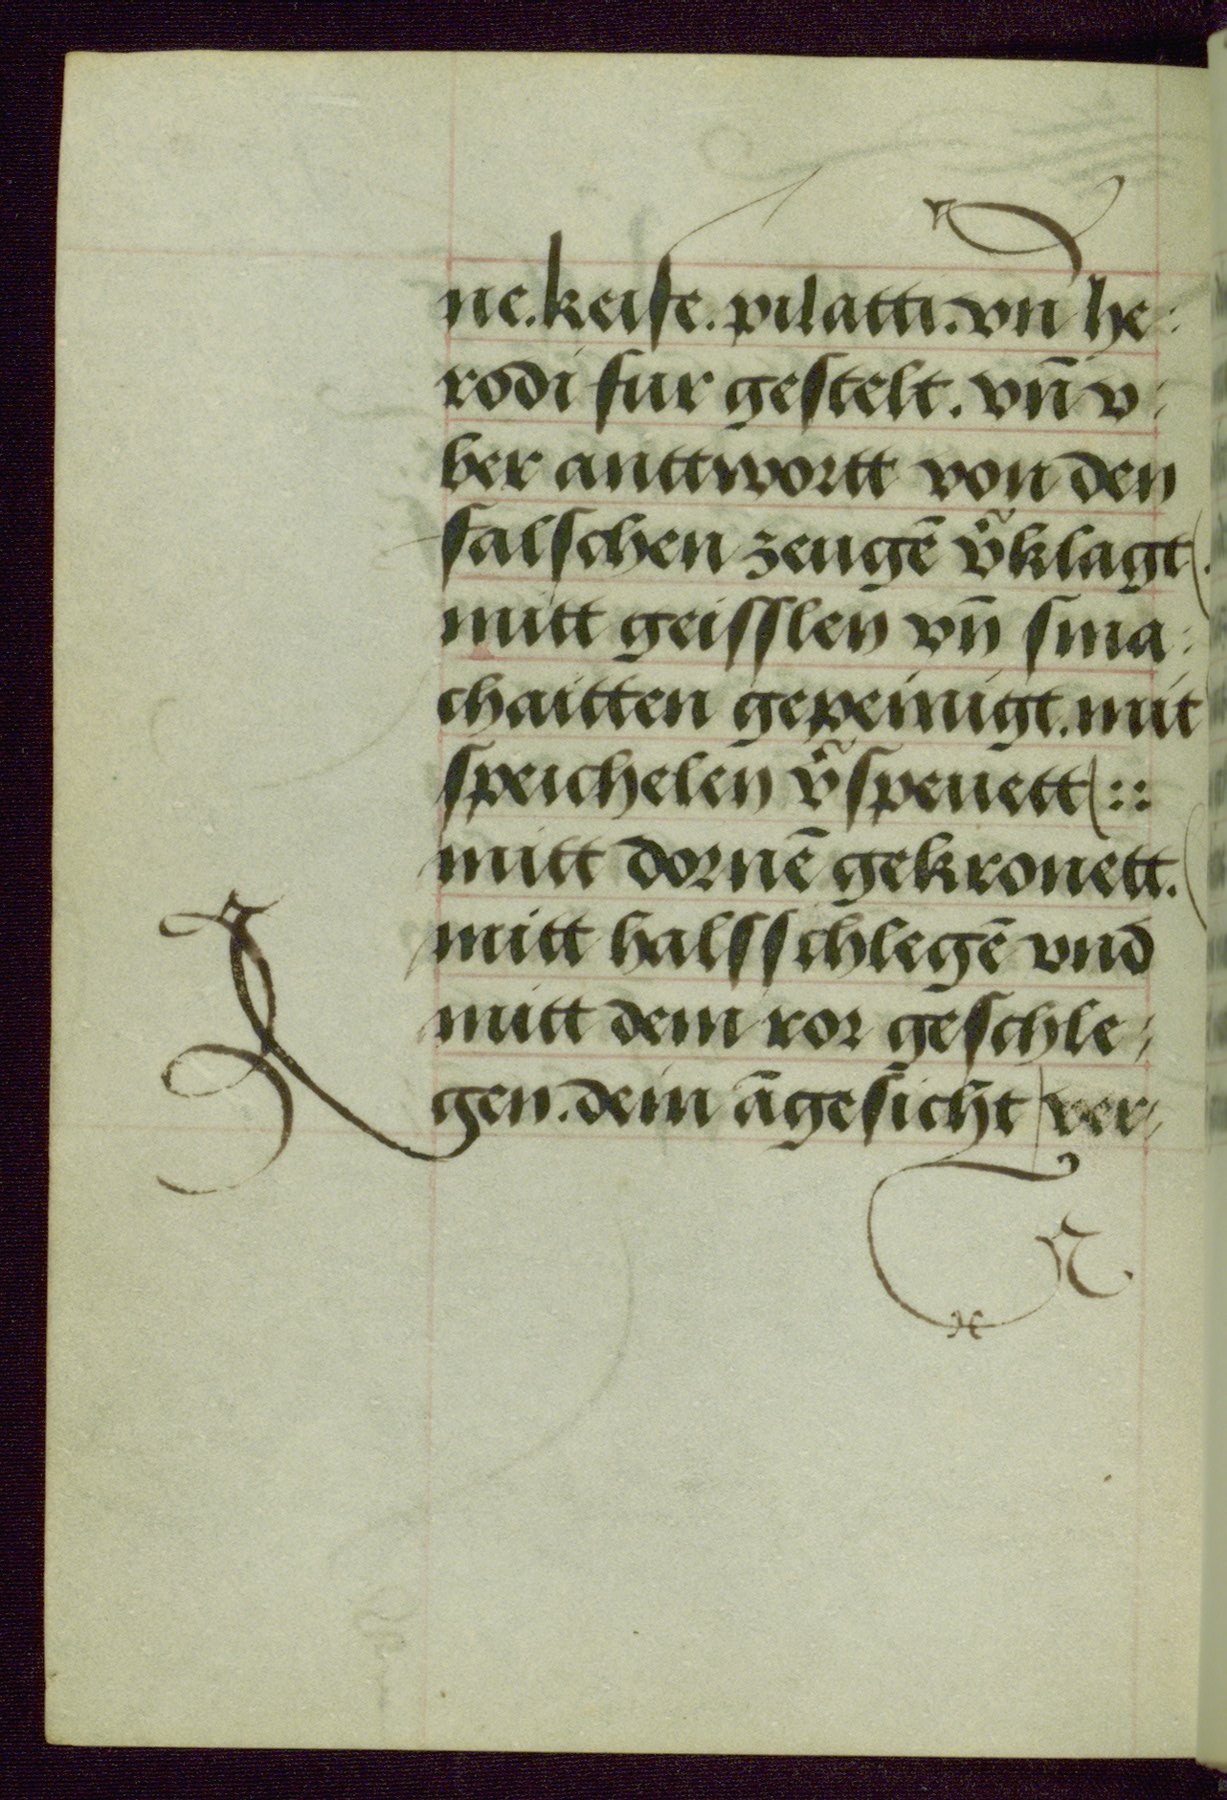 ne. keife. pilatti. vn he:
rodi fur gestelt. vn̄ v:
ber anttwortt von den
falschen zeugē v᷑klagt
mitt geisslen vn̄ sma:
chaitten gepeinigt. mit
speichelen v᷑speuett ::
mitt dornē gekronett.
mitt halsschlegē vnd
mitt dem ror geschle:
gen. dein āgesicht ver: